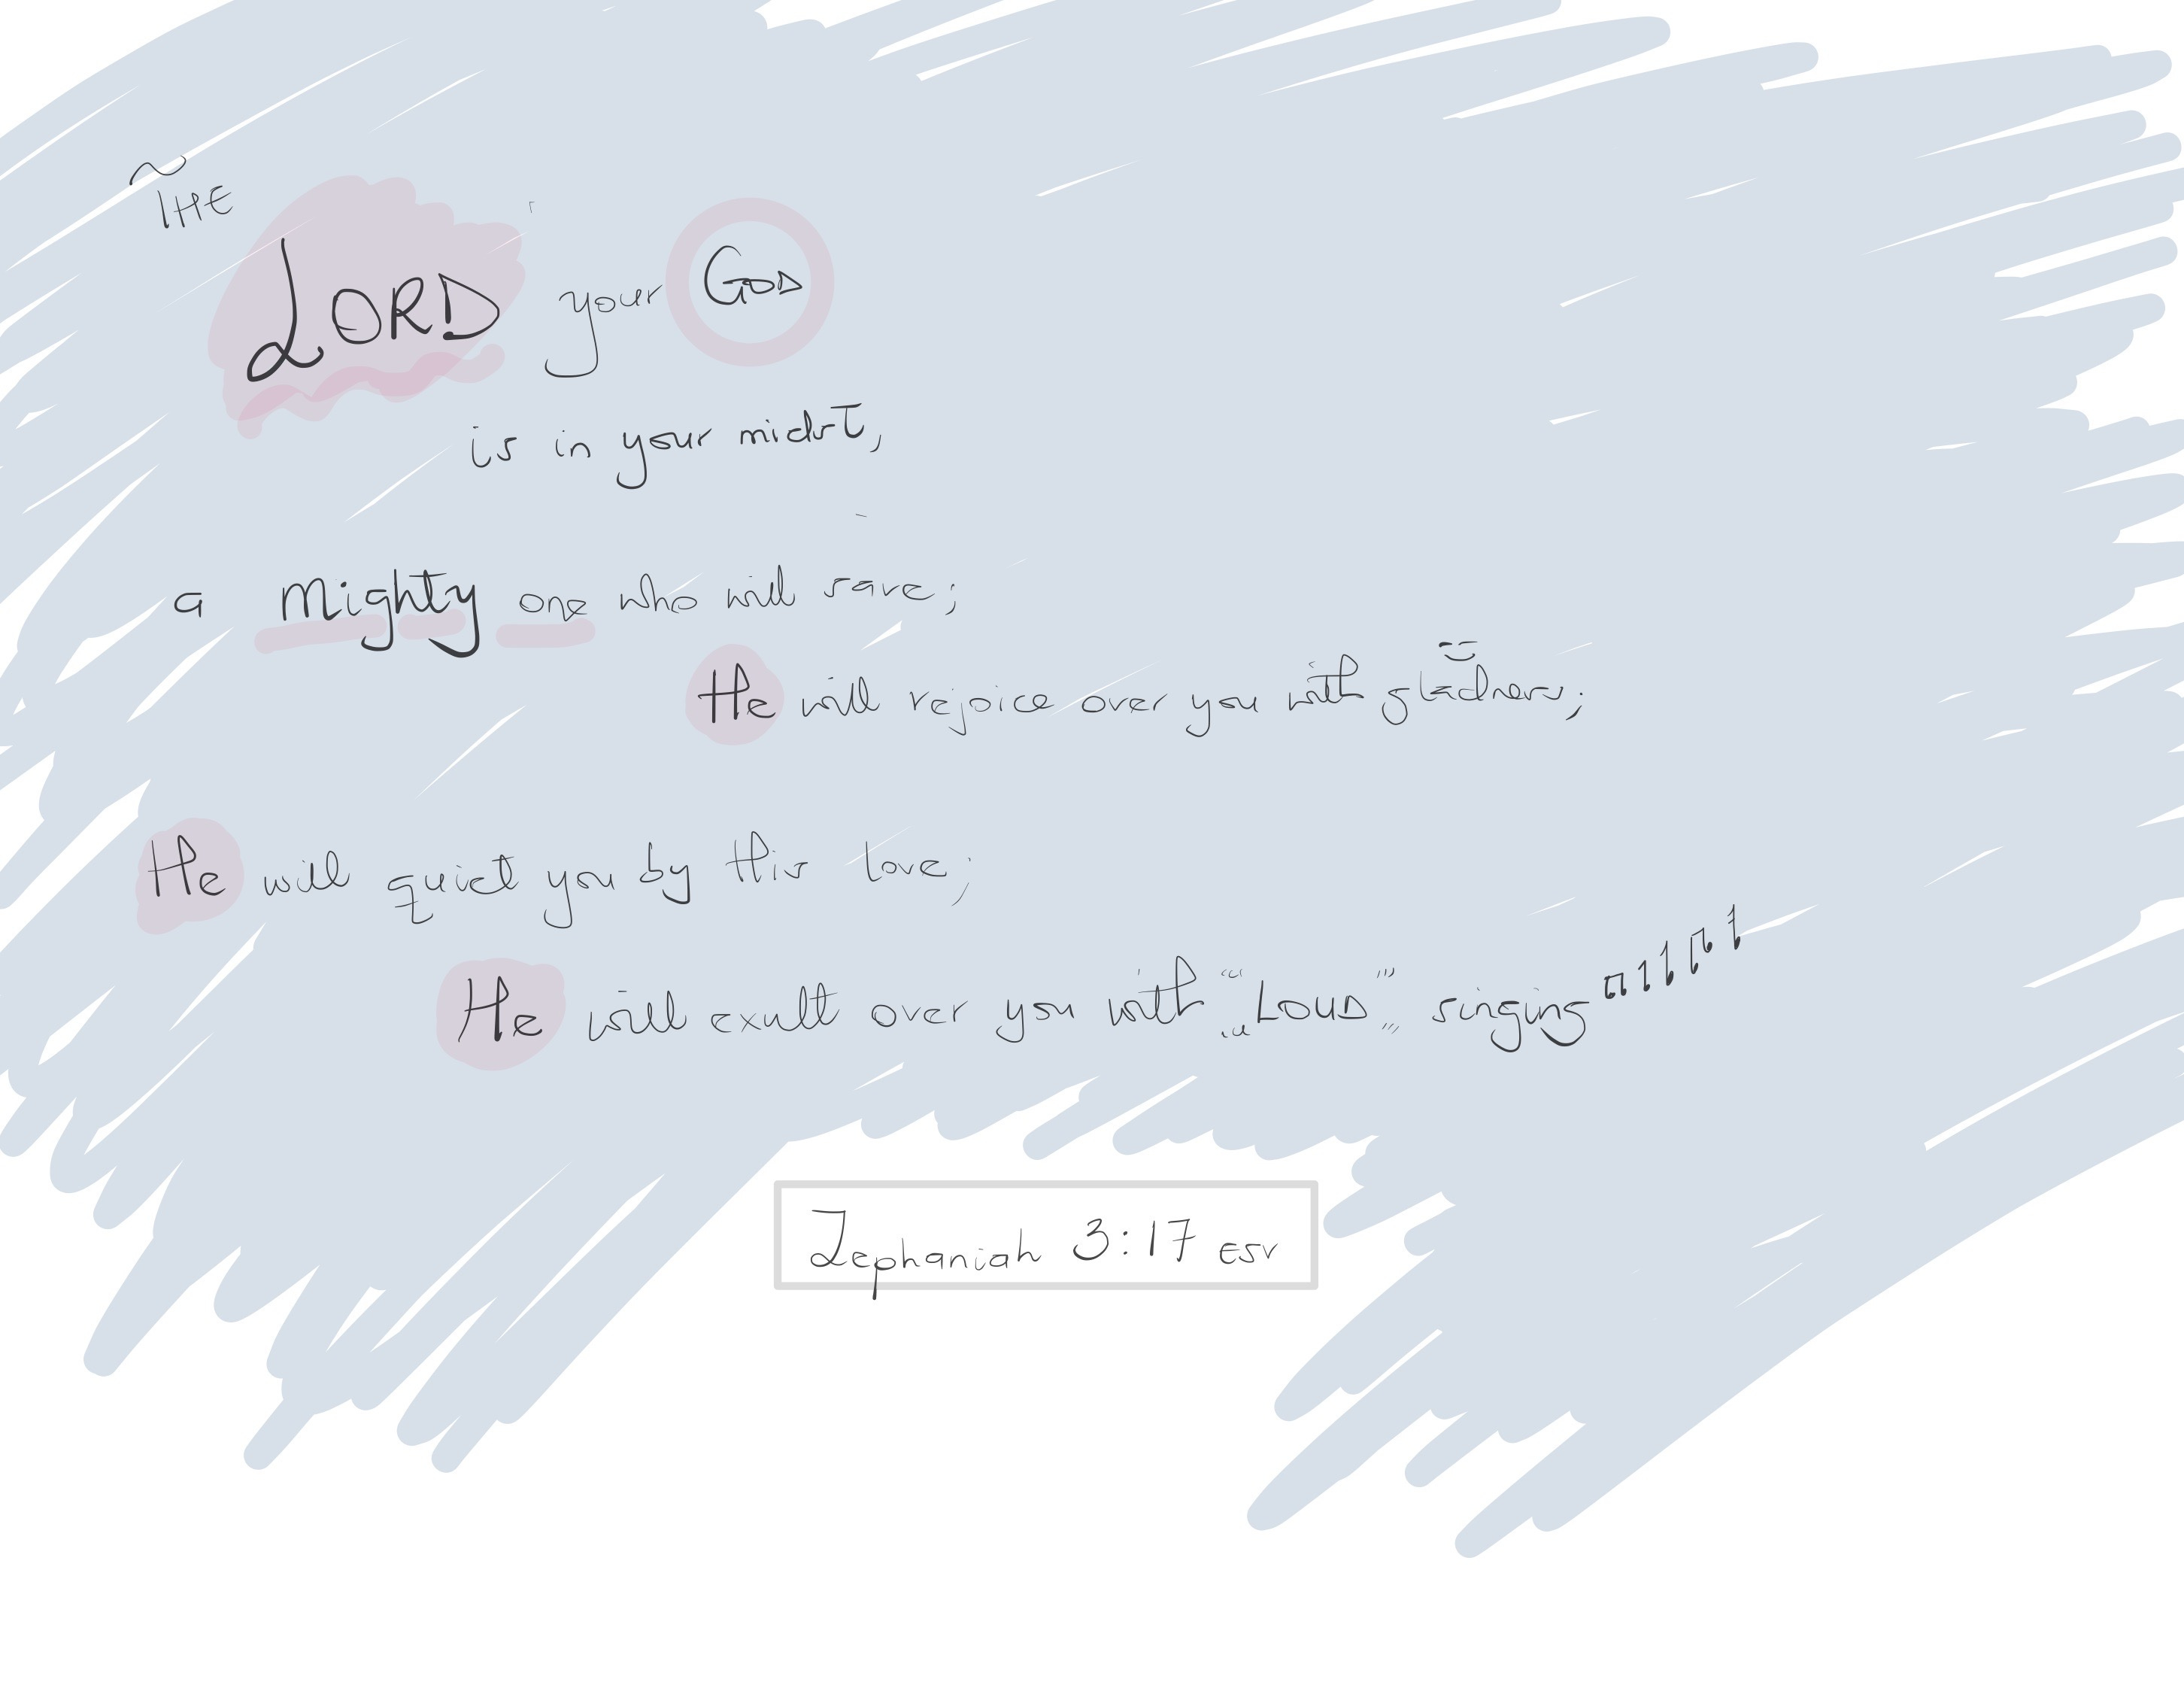 THE
LORD your GOD
is in your midst,
a Mighty one who will save;
He will rejoice over you with gladness;
He will quiet you by his love;
He will exult over you with "Loud" singing
Zephaniah 3:17 ESV